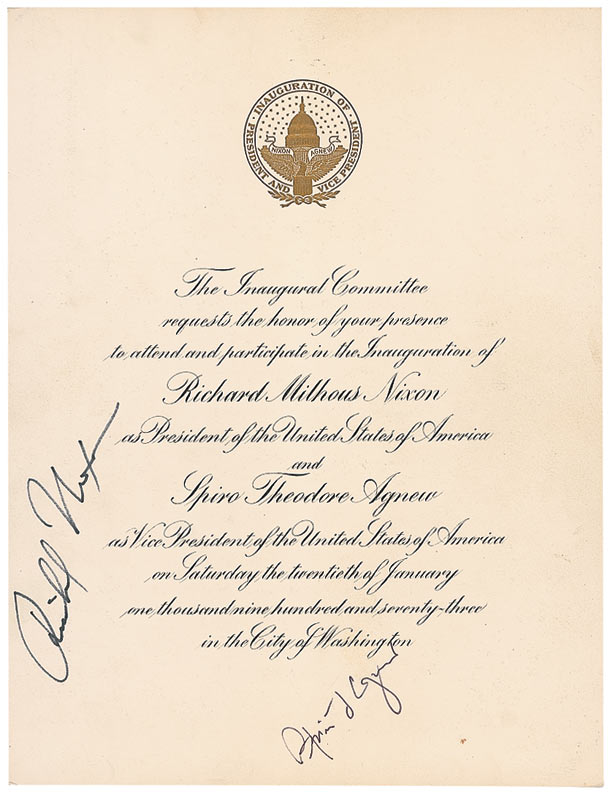 · INAUGURATION OF ·
PRESIDENT AND VICE PRESIDENT
NIXON AGNEW
The Inaugural Committee
requests the honor of your presence
to attend and participate in the Inauguration of
Richard Milhous Nixon
as President of the United States of America
and
Spiro Theodore Agnew
as Vice President of the United States of America
on Saturday the twentieth of January
one thousand nine hundred and seventy-three
in the City of Washington
Richard Nixon
Spiro T Agnew